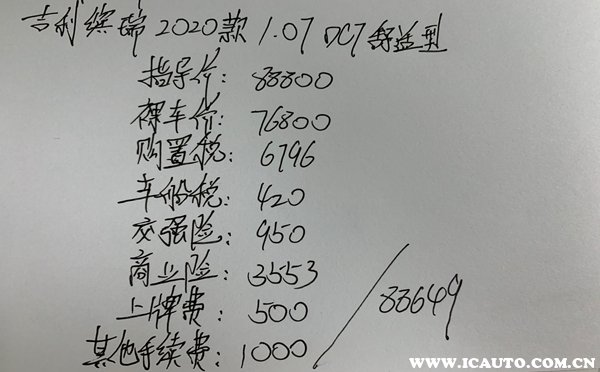 吉利缤瑞 2020款 1.0T DCT舒适型
指导价: 88800
裸车价: 76800
购置税: 6796
车船税: 420
交强险: 950
商业险: 3553
上牌费: 500 / 88649
其他手续费: 1000
WWW.ICAUTO.COM.CN